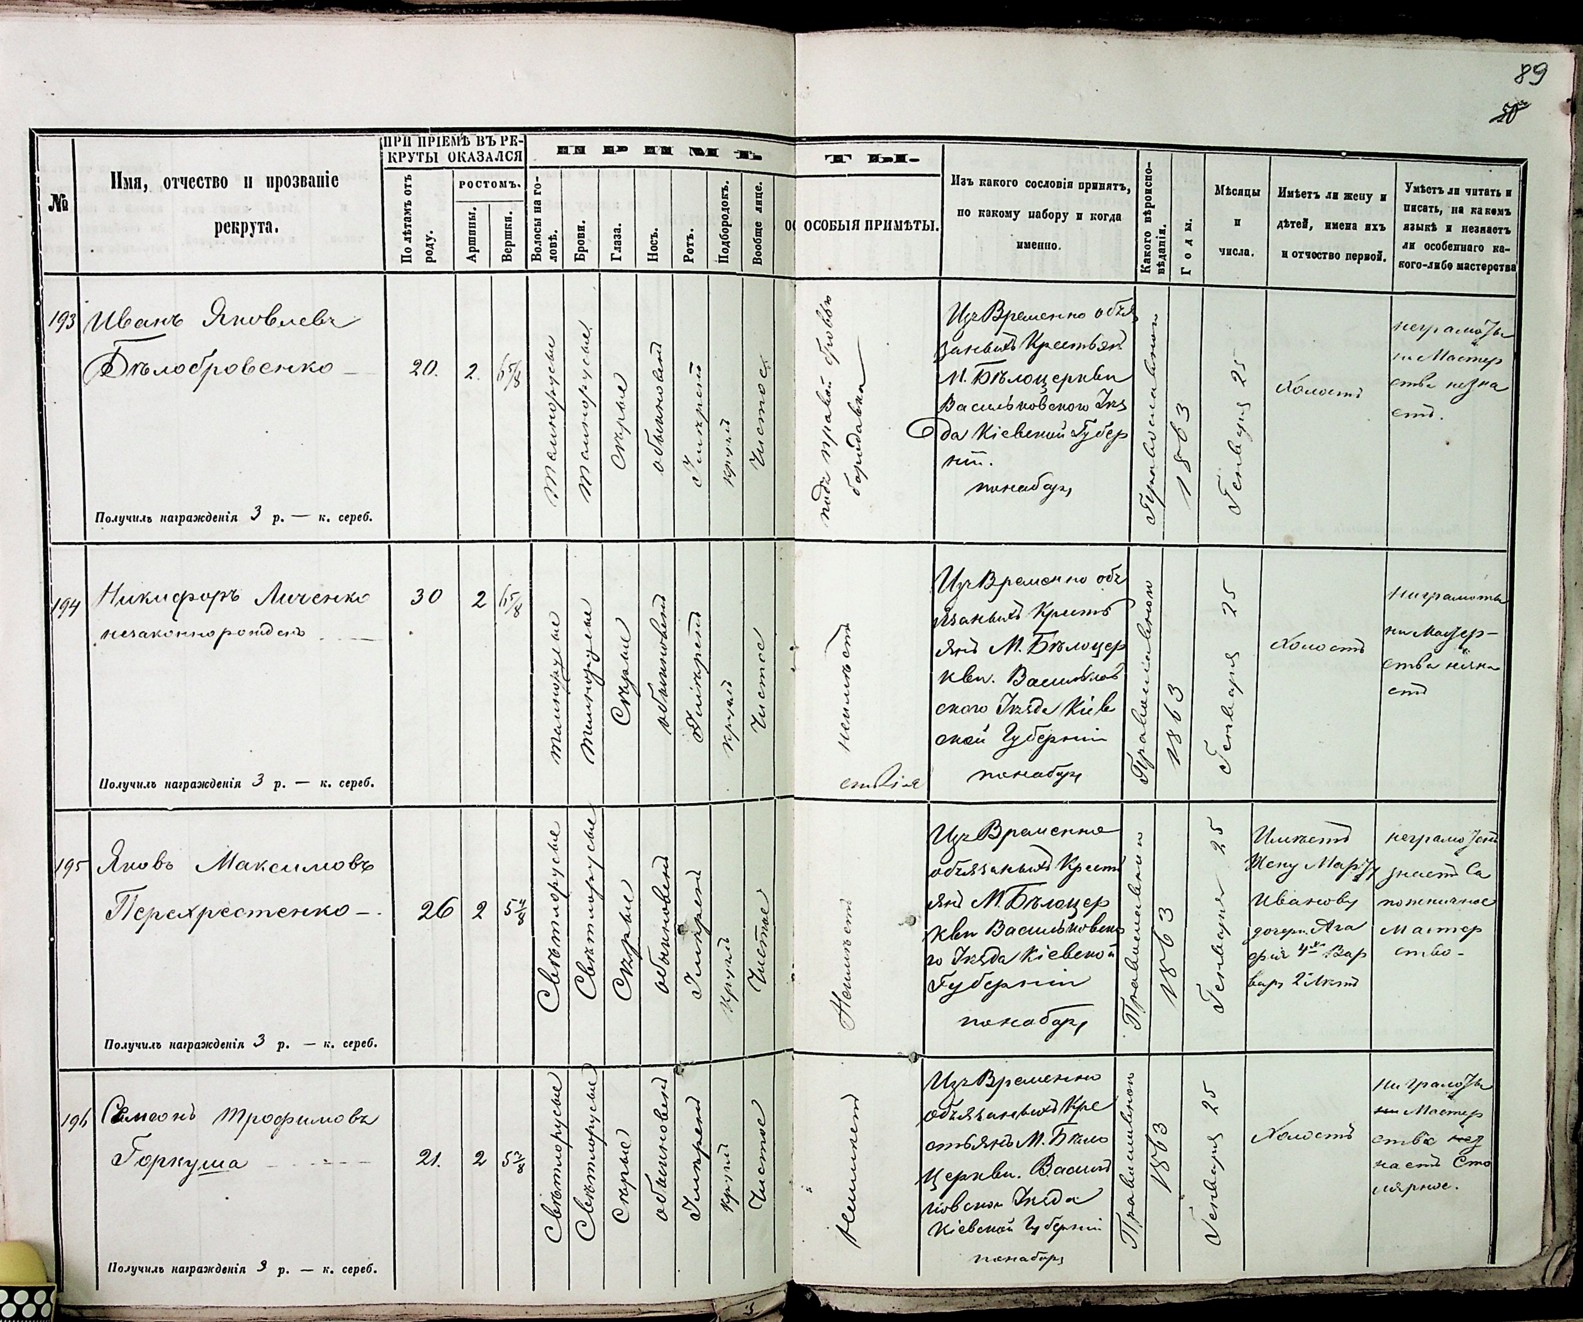 89
№
Имя, отчество и прозваніе
рекрута.
ПРИ ПРІЕМѢ ВЪ РЕ-
КРУТЫ ОКАЗАЛСЯ
По лѣтамъ отъ
роду.
РОСТОМЪ.
Аршины.
Вершки.
ПРИМѢТЫ.
Волосы на го-
ловѣ.
Брови.
Глаза.
Носъ.
Ротъ.
Подбородокъ.
Вообще лице.
ОСОБЫЯ ПРИМѢТЫ.
Изъ какого сословія принятъ,
по какому набору и когда
именно.
Какого вѣроиспо-
вѣданія.
Годы.
Мѣсяцы
и
числа.
Имѣетъ ли жену и
дѣтей, имена ихъ
и отчество первой.
Умѣетъ ли читать и
писать, на какомъ
языкѣ и незнаетъ
ли особеннаго ка-
кого-либо мастерства
193
Иванъ Яковлевъ
Бѣлобровенко —
20.
2.
6 5/8
темнорусые
темнорусые
Сѣрые
обыкновен
Умѣрен
кругл
Чистое
подъ правой бровью
бородавка
Изъ Временно обя
занныхъ Крестьян
М. Бѣлоцеркви
Васильковского Уѣз
да Кіевской Губер
ніи.
понабору
Православном
1863
Генваря 25
Холостъ
неграмоты
ни Мастер
ства незна
етъ.
Получилъ награжденія 3 р. — к. сереб.
194
Никифоръ Личенко
незаконнорожден
30
2
6 5/8
темнорусые
темнорусые
Сѣрые
обыкновен
Умѣрен
кругл
Чистое
неимѣетъ
Изъ Временно обя
занныхъ Кресть
янъ М. Бѣлоцер
кви. Васильков
ского Уѣзда Кіев
ской Губерніи
понабору
Православном
1863
Генваря 25
Холостъ
Ниграмоты
ни Мастер-
ства незна
етъ
Получилъ награжденія 3 р. — к. сереб.
195
Яковъ Максимовъ
Перехрестенко —.
26
2
Свѣтлорусые
Свѣтлорусые
Сѣрые
обыкновен
Умѣрен
Кругл
Чистое
Неимѣетъ
Изъ Временно
обязанныхъ Кресть
янъ М. Бѣлоцер
кви Васильковско
го Уѣзда Кіевской
Губерніи
понабору
Православном
1863
Генваря 25
Имѣетъ
Жену Марfу
Иванову
дочери Ага
фія 4 Вар
вару 2 Лѣтъ
неграмотенъ
знаетъ Са
пожничное
Мастер
ство.
Получилъ награжденія 3 р. — к. сереб.
196
Семеонъ Трофимовъ
Горкуша
21.
2
Свѣтлорусые
Свѣтлорусые
Сѣрые
обыкновен
Умѣрен
кругл
Чистое
Неимѣетъ
Изъ Временно
обязанныхъ Кре
стьянъ М. Бѣло
Церкви. Василь
ковского Уѣзда
Кіевской Губерніи
понабору
Православном
1863
Генваря 25
Холостъ
ниграмоты
ни Мастер
ства нез
наетъ Сто
лярное.
Получилъ награжденія 3 р. — к. сереб.